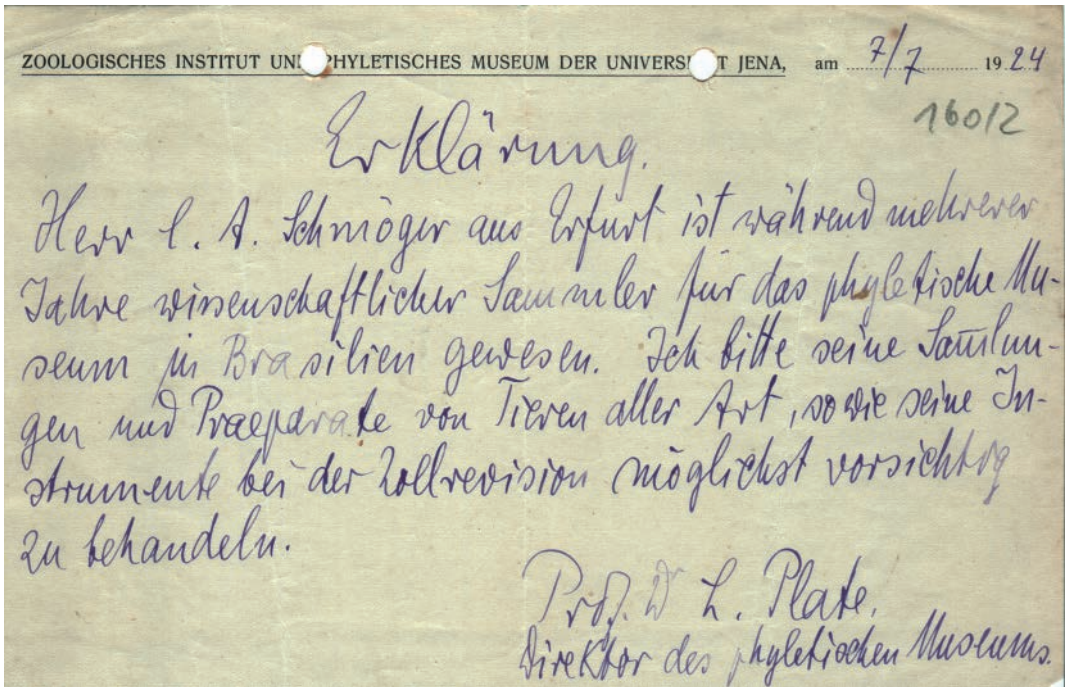 ZOOLOGISCHES INSTITUT UND PHYLETISCHES MUSEUM DER UNIVERSITÄT JENA, am 7/7 1924
160/2
Erklärung.
Herr C. A. Schmöger aus Erfurt ist während mehrerer
Jahre wissenschaftlicher Sammler für das phyletische Mu-
seum in Brasilien gewesen. Ich bitte seine Sam̅lun-
gen und Praeparate von Tieren aller Art, sowie seine In-
strumente bei der Zollrevision möglichst vorsichtig
zu behandeln.
Prof. Dr L. Plate.
Direktor des phyletischen Museums.